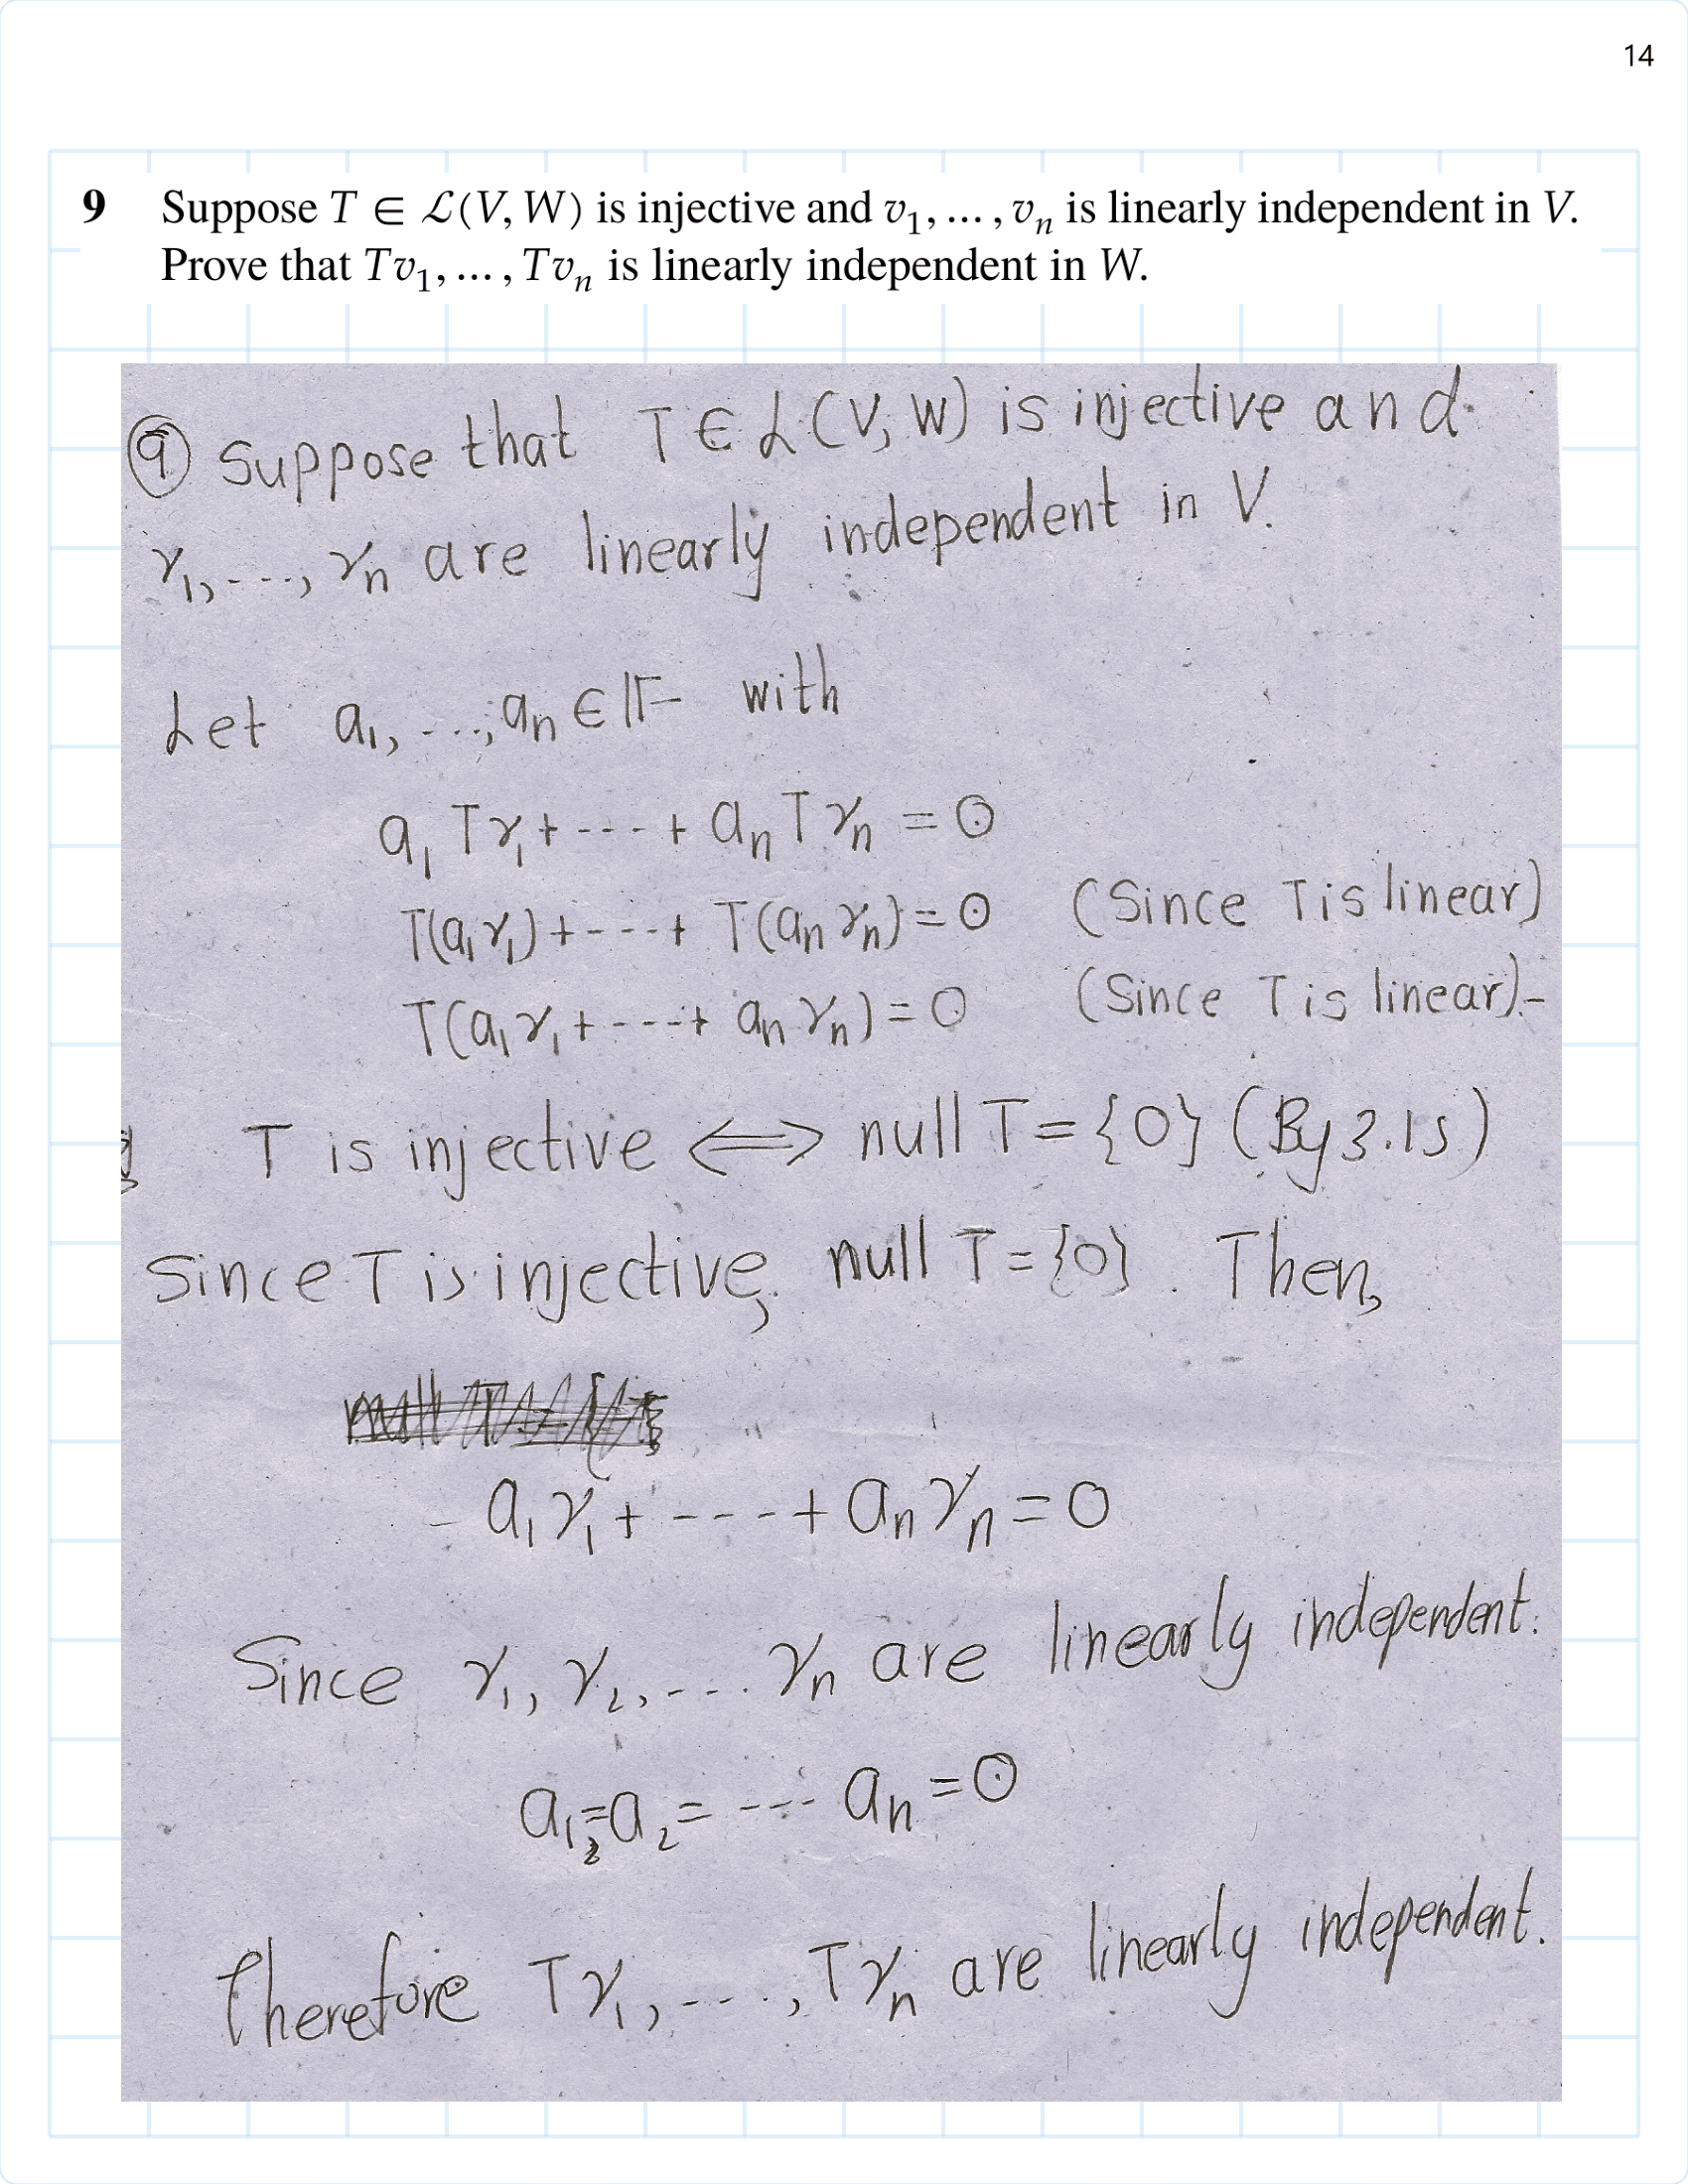 14
9 Suppose T ∈ ℒ(V, W) is injective and v₁, … , vₙ is linearly independent in V.
Prove that Tv₁, … , Tvₙ is linearly independent in W.
⑨ Suppose that T ∈ ℒ(V, W) is injective and
v₁, ..., vₙ are linearly independent in V.
Let a₁, ..., aₙ ∈ 𝔽 with
a₁Tv₁ + ---- + aₙTvₙ = 0
T(a₁v₁) + ---- + T(aₙvₙ) = 0 (Since T is linear)
T(a₁v₁ + ---- + aₙvₙ) = 0 (Since T is linear).
T is injective ⟺ null T = {0} (By 3.15)
Since T is injective, null T = {0}. Then,
a₁v₁ + ---- + aₙvₙ = 0
Since v₁, v₂, .... vₙ are linearly independent.
a₁ = a₂ = --- aₙ = 0
Therefore Tv₁, ...., Tvₙ are linearly independent.